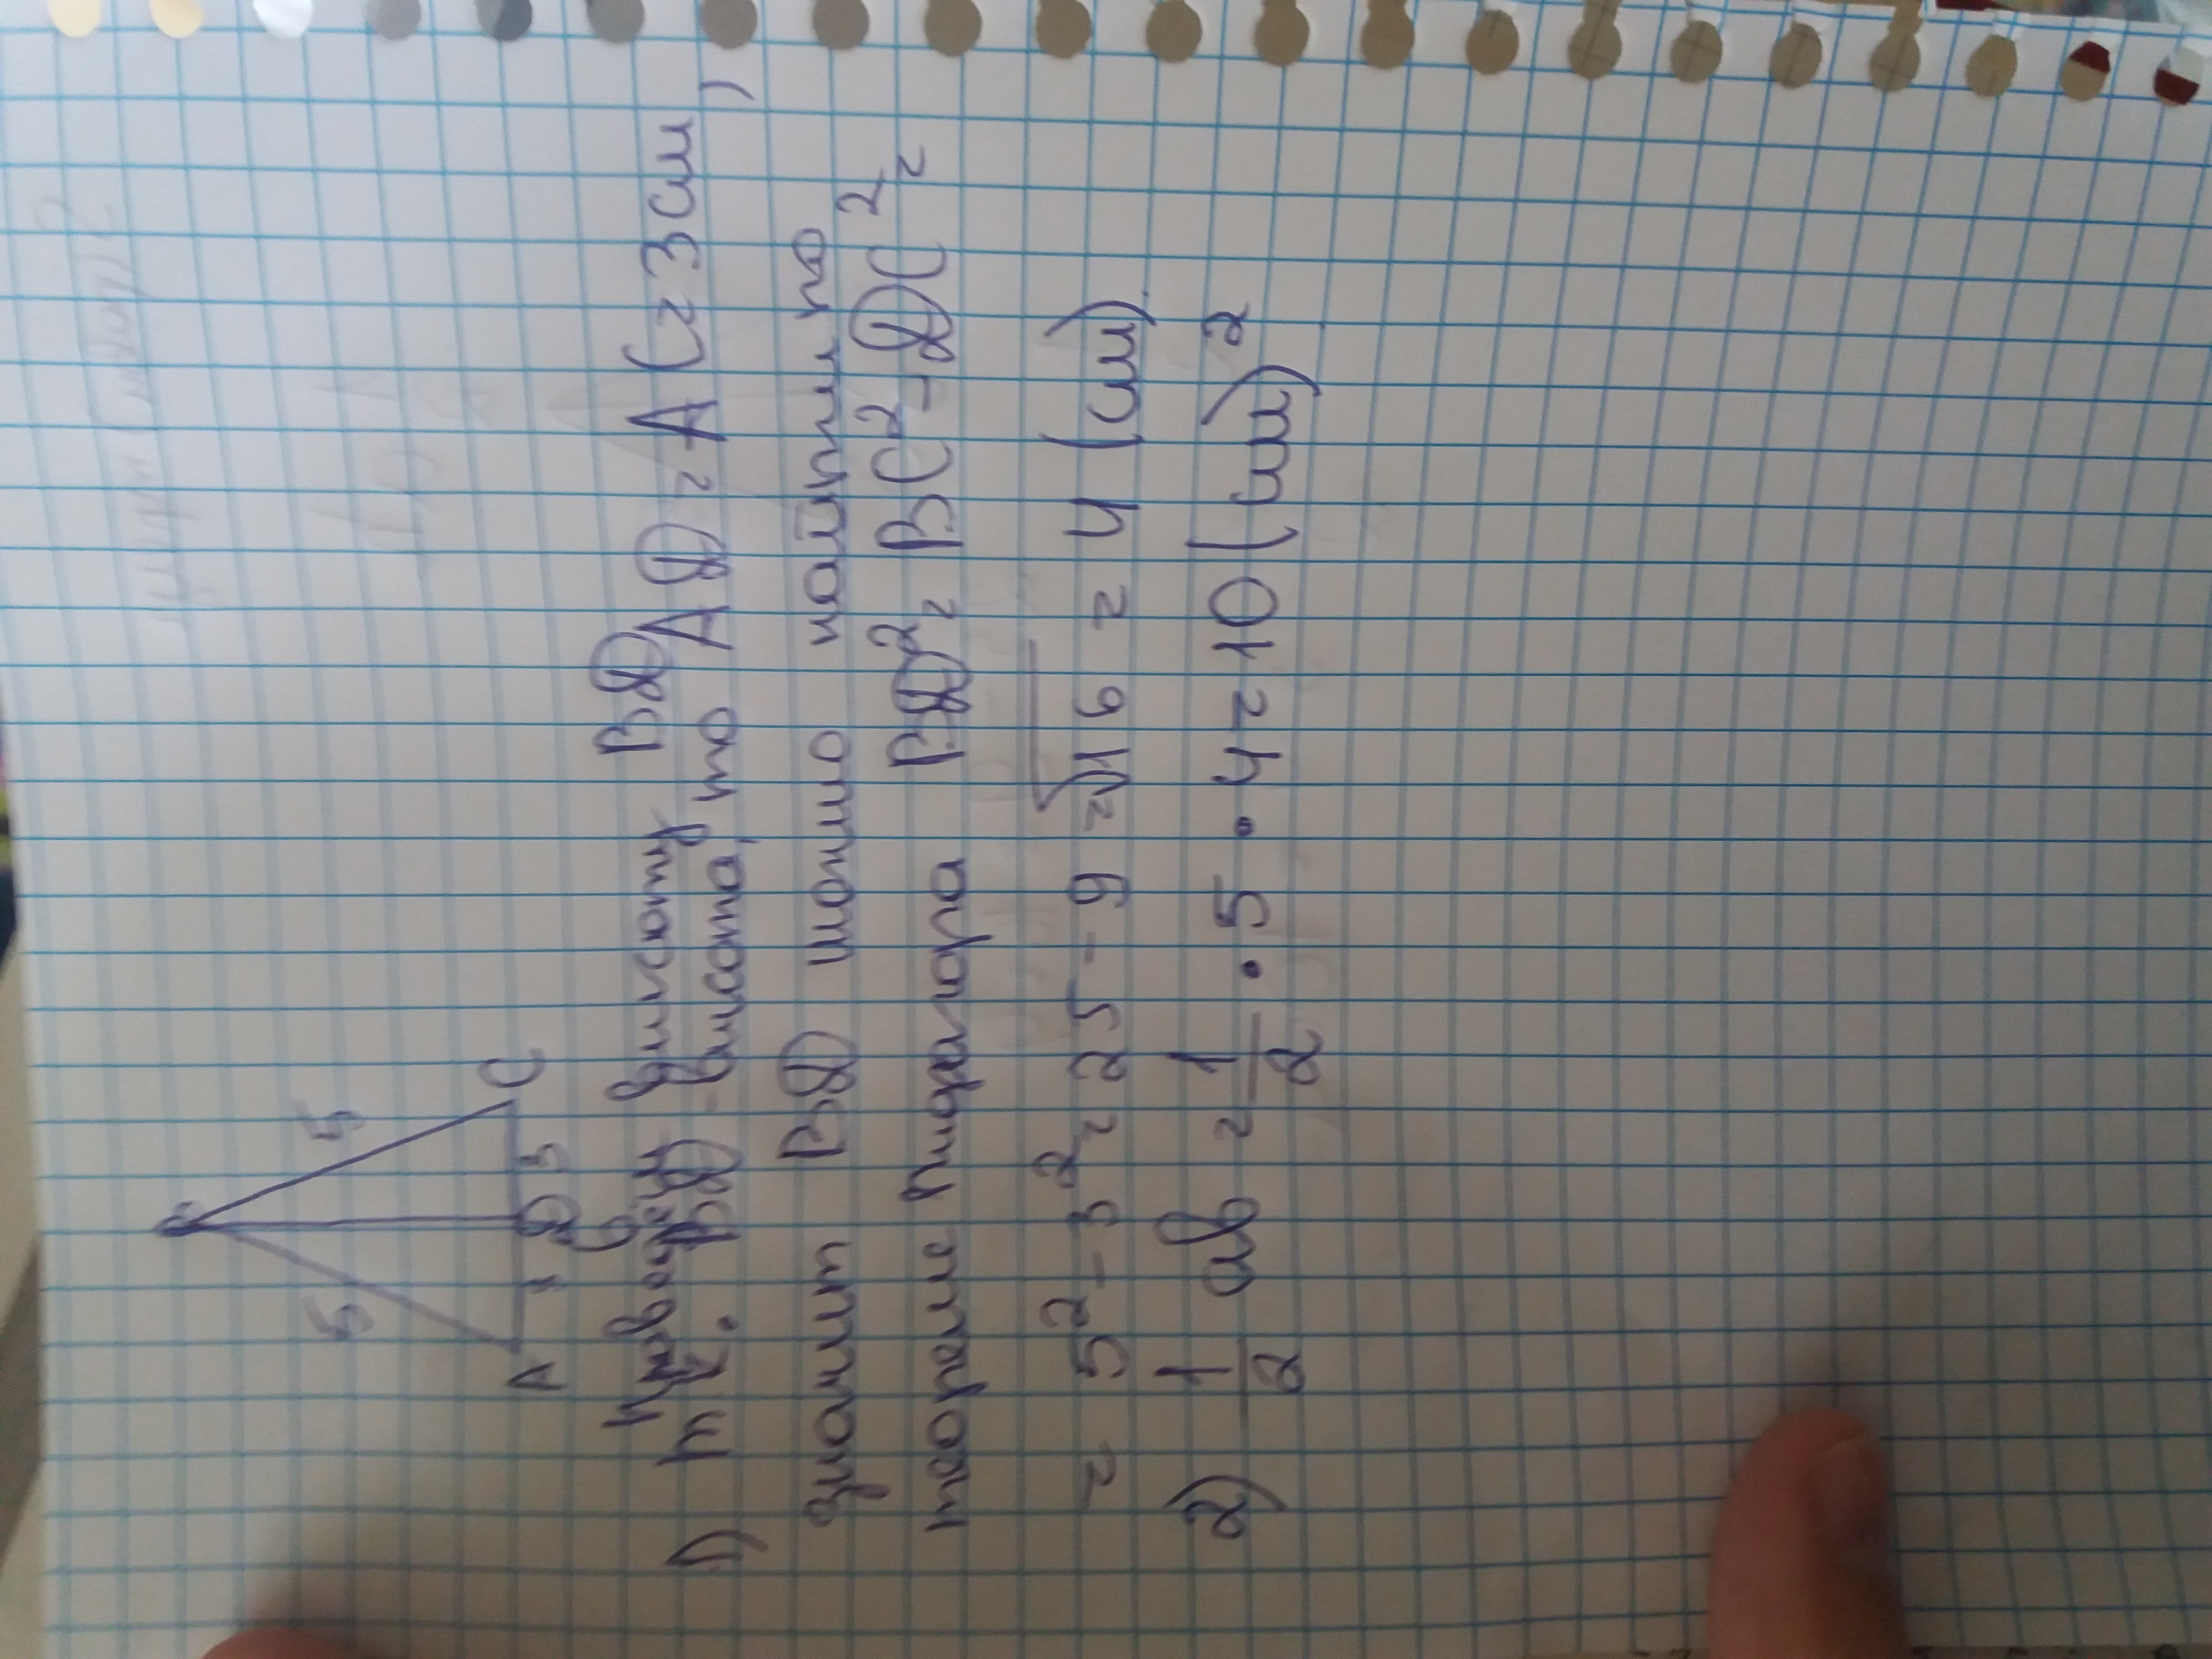 B
5
5
A
C
3
6
Проведём высоту BD
1) т.к. BD - высота, то AD = AC = 3 см,
значит BD можно найти по
теореме Пифагора BD² = BC² - DC² =
= 5² - 3² = 25 - 9 = √16 = 4 (см)
2) 1/2 ab = 1/2 · 5 · 4 = 10 (см)²